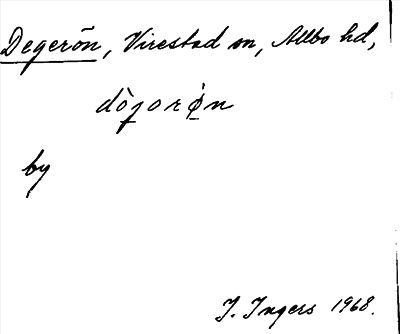 Degerön, Virestad sn, Allbo hd,
dò̀gorø̀n
by
I. Ingers 1968.